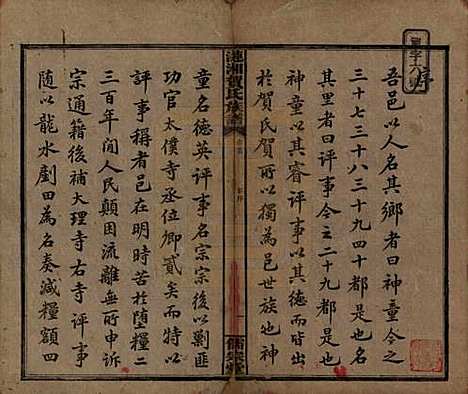 序
吾邑以人名其鄉者曰神童今之
三十七三十八三十九四十都是也名
其里者曰評事今之二十九都是也
神童以其睿評事以其德而皆出
於賀氏賀所以獨為邑世族也神
漣湘賀氏族譜
儒宗堂
童名德英評事名宗宗後以剿匪
功官太僕寺丞位卿貳矣而特以
評事稱者邑在明時苦於墮糧二
三百年間人民顛困流離無所申訴
宗通籍後補大理寺右寺評事
隨以龍水劃田為名奏減糧額四